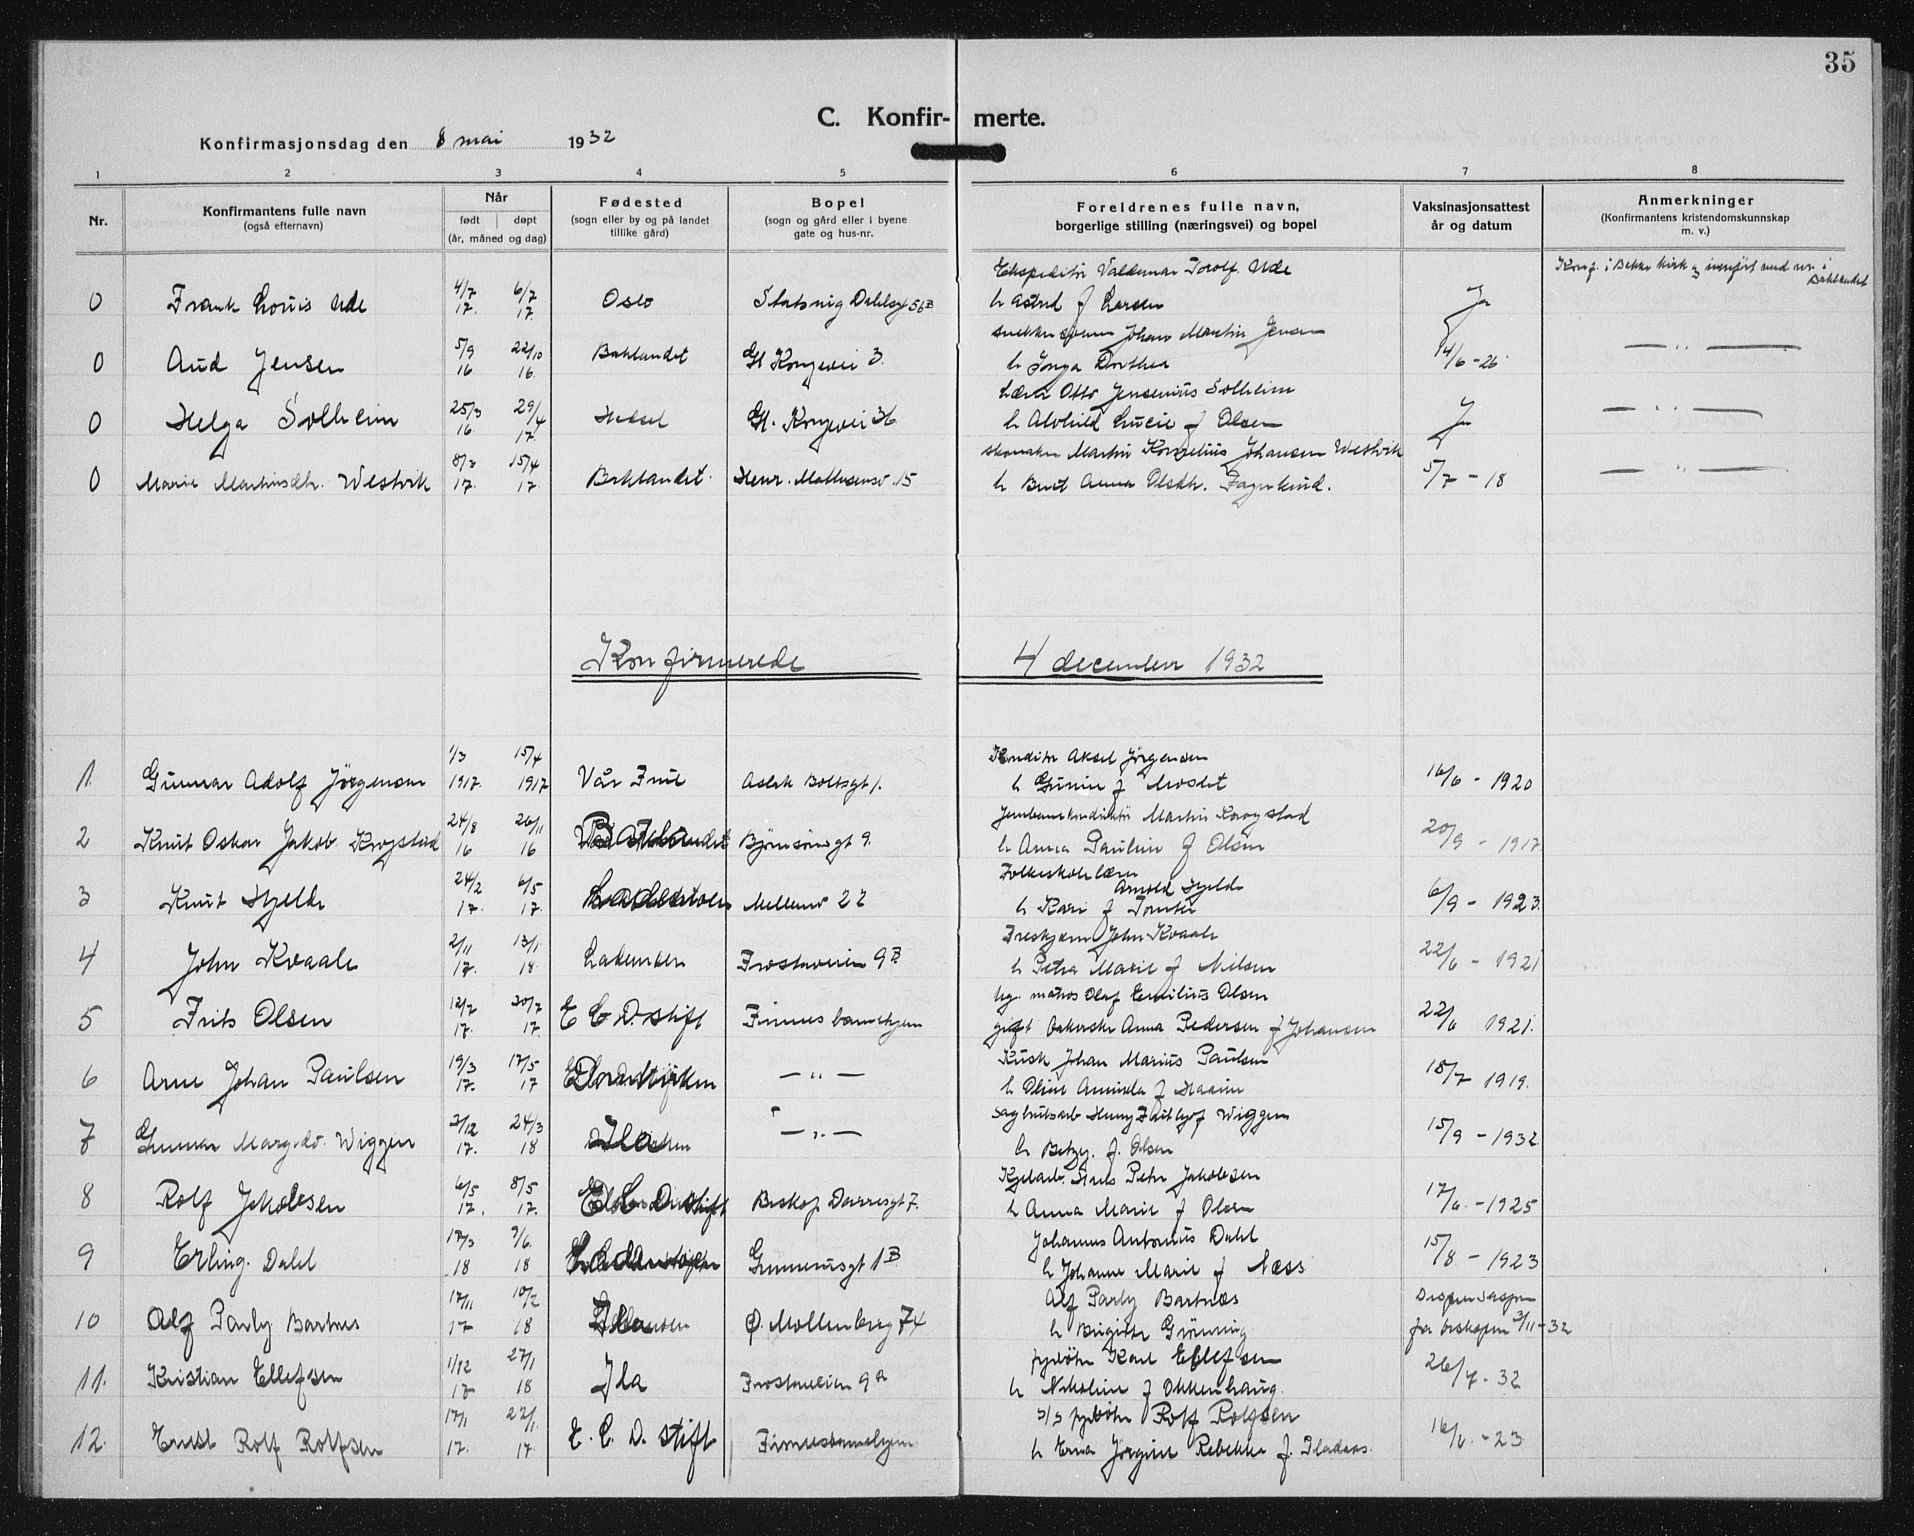 35
C. Konfir- merte.
Konfirmasjonsdag den 8 mai 1932
1 2 3 4 5 6 7 8
Nr.
Konfirmantens fulle navn
(også efternavn)
Når
født døpt
(år, måned og dag)
Fødested
(sogn eller by og på landet
tillike gård)
Bopel
(sogn og gård eller i byene
gate og hus-nr.
Foreldrenes fulle navn,
borgerlige stilling (næringsvei) og bopel
Vaksinasjonsattest
år og datum
Anmerkninger
(Konfirmantens kristendomskunnskap
m. v.)
Ekspeditør Valdemar Torolf Ude
Konf. i Bakke kirk og innført med nr. i
Baklandet
0 Frank Louis Ude 4/7 17. 6/7 17. Oslo 56B
h Astrid f Larsen Ja
Johan Martin Jensen
0 Aud Jensen 5/9 16 22/10 16. Baklandet Gl Kongevei 3.
h Inga Dorthea 14/6-26 — " —
Lærer Otto Jensenius Solheim
0 Helga Solheim 25/3 16 29/4 17. Gl. Kongevei 36
h Alvhild Lucie f Olsen Ja — " —
skomaker Martin Kornelius Johansen Westvik
0 Marie Martinsdtr. Westvik 8/2 17. 15/4 17. Baklandet. Henr. Mathesensv. 15
h Berit Anna Olsdtr. 5/7-18 — " —
Konfirmerede 4 december 1932
Konditor Aksel Jørgensen
1. Gunnar Adolf Jørgensen 1/3 1917. 15/4 1917 Vår Frue Aslak Boltsgt 1.
h Gunda f Mostet 16/6-1920
Martin Krogstad
2 Knut Oskar Jakob Krogstad 24/8 16 26/11 16 Bjørnsonsgt 9.
h Anna Pauline f Olsen 20/9-1917
Folkeskolelærer
Arnold Hjelde
3 Knut Hjelde 24/2 17. 6/5 17. Møllenv 22
h Kari f 6/9-1923.
John Kvaale
4 John Kvaale 2/11 17. 13/1 18. Lademoen Frostaveien 9B
h Petra Marie f Nilsen 22/6-1921
matros Olaf Emilius Olsen
5 Frits Olsen 12/7 17. 30/7 17. E C D. stift Finnes barnehjem
gift Anna Pedersen f Johansen 22/6 1921.
Kusk Johan Marius Paulsen
6 Arne Johan Paulsen 19/3 17. 17/5 17 Domkirken — " —
h Oline Aminda f 18/7 1919.
Wiggen
7 Gunnar Wiggen 3/12 17. 24/3 18 Ila — " —
h Betzy. f. Olsen 15/9-1932
Peter Jakobsen
8 Rolf Jakobsen 6/5 17. 8/5 17. E C D stift Biskop Darresgt 7.
h Anna Marie f Olsen 17/6-1925
Johannes Antonius Dahl
9 Erling. Dahl 17/3 18 2/6. 18 Gunnerusgt 1B
h Johanne Marie f Næss 15/8-1923
Alf Parly Bartnes
10 Alf Parly Bartnes 17/11 17 10/2 18 Ila Ø. Møllenberg 74
h Birgitte Grønning 3/11-32
fyrbøter Karl Ellefsen
11. Kristian Ellefsen 1/12 17 27/1 18 Ila Frostaveien 9a
h Nikoline f Okkenhaug. 26/4-32
s/s fyrbøter Rolf Rolfsen
12. Ernst Rolf Rolfsen 17/1 17. 22/1. 17. E. C. D. stift Finnesbarnehjem
h Erna Jørgine Rebekka f. 16/6.-23.